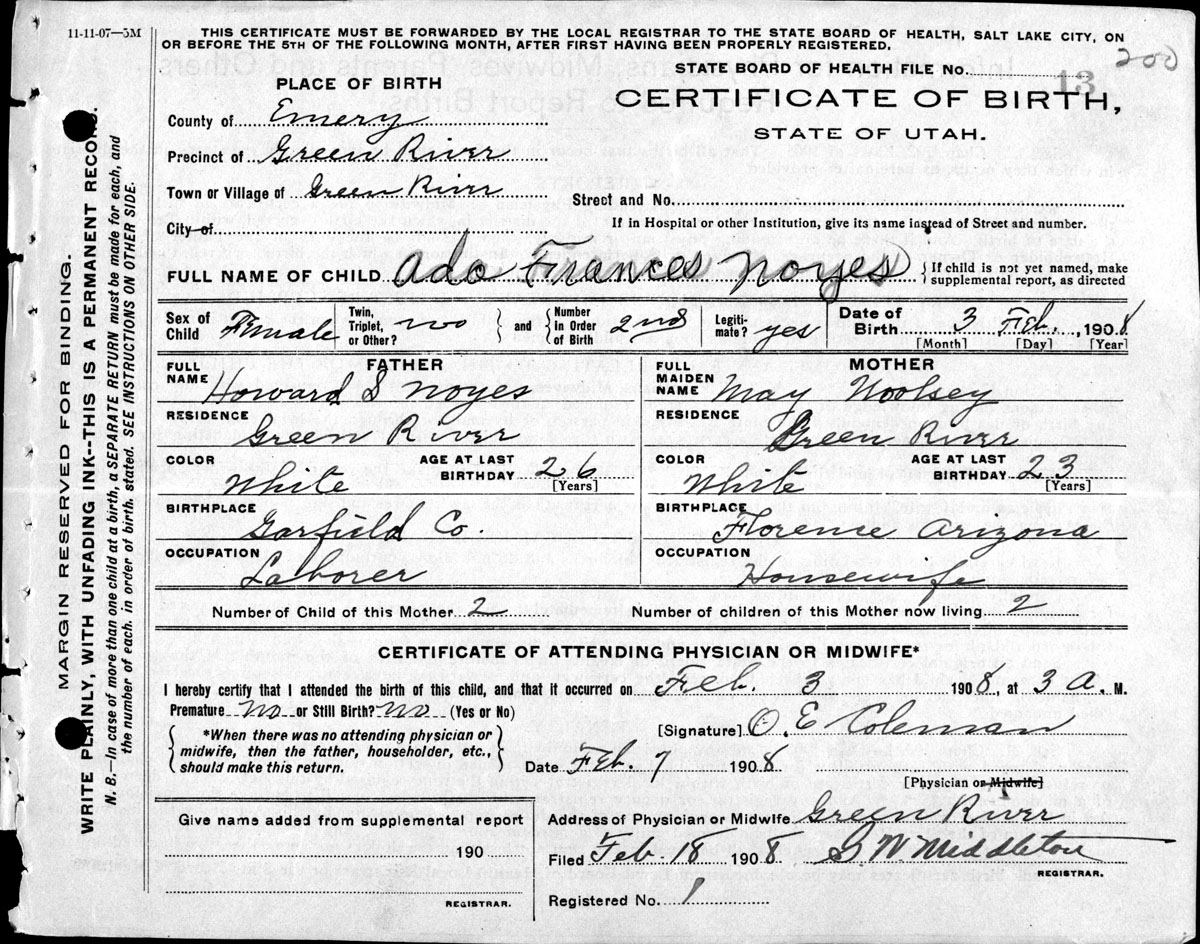 11-11-07—5M
THIS CERTIFICATE MUST BE FORWARDED BY THE LOCAL REGISTRAR TO THE STATE BOARD OF HEALTH, SALT LAKE CITY, ON
OR BEFORE THE 5TH OF THE FOLLOWING MONTH, AFTER FIRST HAVING BEEN PROPERLY REGISTERED.
200
STATE BOARD OF HEALTH FILE No. 13
PLACE OF BIRTH
CERTIFICATE OF BIRTH,
STATE OF UTAH.
County of Emery
Precinct of Green River
Town or Village of Green River
Street and No.
City of
If in Hospital or other Institution, give its name instead of Street and number.
FULL NAME OF CHILD Ada Frances Noyes { If child is not yet named, make supplemental report, as directed
Sex of Child Female { Twin, Triplet, or Other? no } and { Number In Order of Birth 2nd Legiti-mate? yes Date of Birth 3 Feb., 1908
[Month] [Day] [Year]
FATHER
MOTHER
FULL NAME Howard S Noyes
FULL MAIDEN NAME May Woolsey
RESIDENCE Green River
RESIDENCE Green River
COLOR White AGE AT LAST BIRTHDAY 26 [Years]
COLOR White AGE AT LAST BIRTHDAY 23 [Years]
BIRTHPLACE Garfield Co.
BIRTHPLACE Florence Arizona
OCCUPATION Laborer
OCCUPATION Housewife
Number of Child of this Mother 2 Number of children of this Mother now living 2
CERTIFICATE OF ATTENDING PHYSICIAN OR MIDWIFE*
I hereby certify that I attended the birth of this child, and that it occurred on Feb. 3 1908, at 3 A. M.
Premature No or Still Birth? No (Yes or No)
[Signature] O. E Coleman
{ *When there was no attending physician or
midwife, then the father, householder, etc.,
should make this return. }
Date Feb. 7 1908
[Physician or Midwife]
Give name added from supplemental report
190
REGISTRAR.
Address of Physician or Midwife Green River
Filed Feb. 18 1908, G. W Middleton
REGISTRAR.
Registered No. 1
MARGIN RESERVED FOR BINDING.
WRITE PLAINLY, WITH UNFADING INK--THIS IS A PERMANENT RECORD.
N. B.—In case of more than one child at a birth, a SEPARATE RETURN must be made for each, and
the number of each, in order of birth, stated. SEE INSTRUCTIONS ON OTHER SIDE.